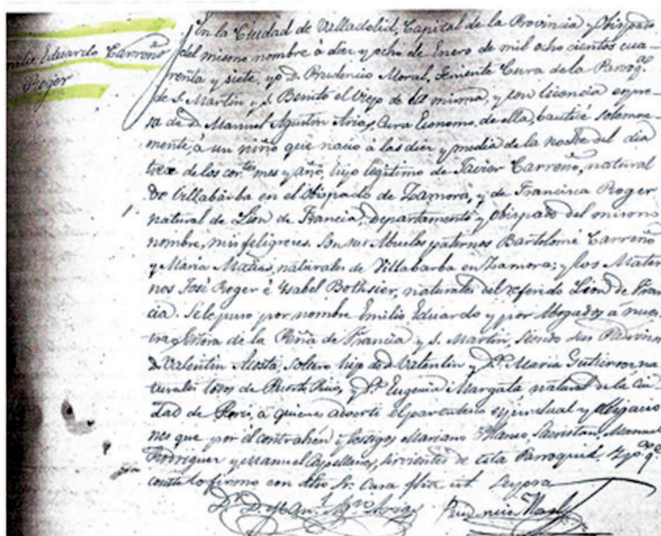 Emilio Eduardo Carreño
Roger
En la Ciudad de Valladolid, Capital de la Provincia y Obispado
del mismo nombre á diez y ocho de Enero de mil ocho cientos cua-
renta y siete, yo D. Prudencio Moral, Teniente Cura de la Parroq.
de S. Martin y S. Benito el Viejo de la misma, y con licencia expre-
sa de D. Manuel Agustin Arias, Cura Economo de ella, bauticé solemne-
mente, a un niño que nació a las diez y media de la noche del dia
trece de los cor.tes mes y año, hijo legitimo de Javier Carreño, natural
de Villabarba en el Obispado de Zamora, y de Francisca Roger
natural de Lion de Francia, Departamento y obispado del mismo
nombre, mis feligreses. Son sus Abuelos paternos Bartolomé Carreño
y Maria Matias, naturales de Villabarba en Zamora; y los Mater-
nos José Roger é Ysabel Bothsier, naturales del referido Lion de Fran-
cia. Se le puso por nombre Emilio Eduardo y por Abogados á nues-
tra Señora de la Peña de Francia y S. Martin, siendo sus Padrinos
D. Valentin soltero hijo de D. Valentin y D.ª Maria Gutierrez, na-
turales y D.ª Eugenia Margata natural de la Ciu-
dad de Paris, á quienes advertí el parentesco espiritual y obligacio-
nes que por él contrahen y testigos Mariano Blanco, Sacristan, Manuel
Rodriguez y Manuel Capellanes, sirvientes de esta Parroquia, y p.a q.e
conste lo firmo con dho Sr. Cura fha ut supra
D.n Man.l Ag.n Arias Prudencio Moral